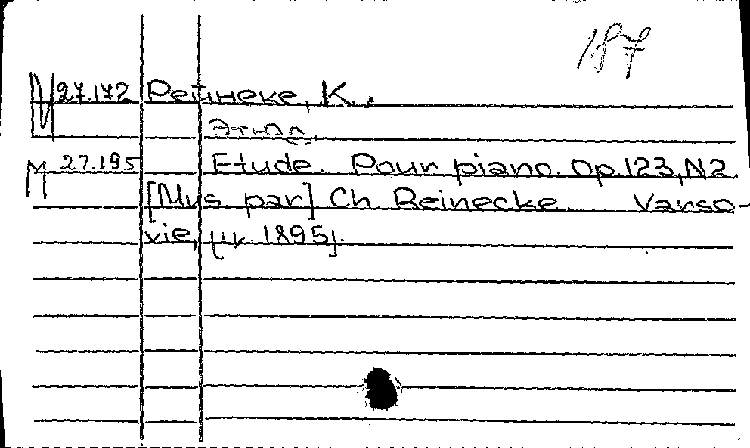 187
М 27.172 Рейнеке, К.,
Этюд.
М 27.195 Etude. Pour piano. Op.123, N2.
[Mus. par] Ch. Reinecke. Varso-
vie, 1895].